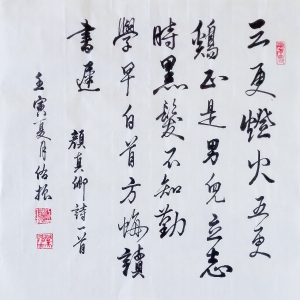 三更燈火五更
鷄正是男兒立志
時黑髮不知勤
學早白首方悔讀
書遲
顏真卿詩一首
壬寅夏月佑振